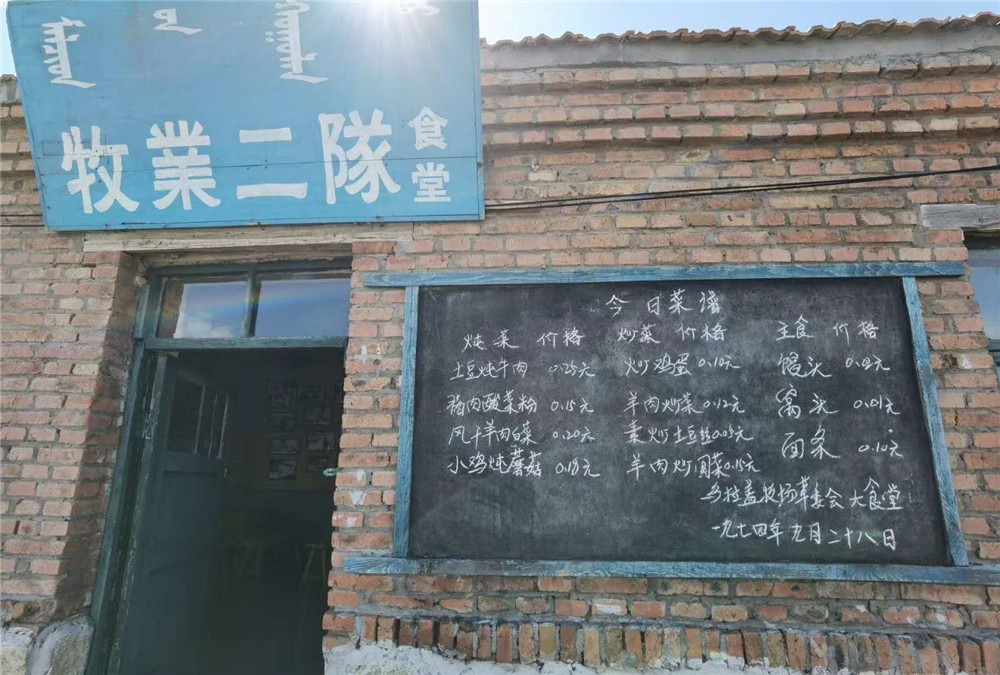 牧業二隊 食堂
今日菜谱
炖菜 价格 炒菜 价格 主食 价格
土豆炖牛肉 0.25元 炒鸡蛋 0.10元 馒头
猪肉酸菜粉 0.15元 羊肉炒菜 0.12元 窝头 0.01元
风干羊肉白菜 0.20元 素炒土豆丝 0.05元 面条 0.10元
小鸡炖蘑菇 0.18元 羊肉炒圆菜 0.15元
乌拉盖牧场革委会大食堂
一九七四年九月二十八日